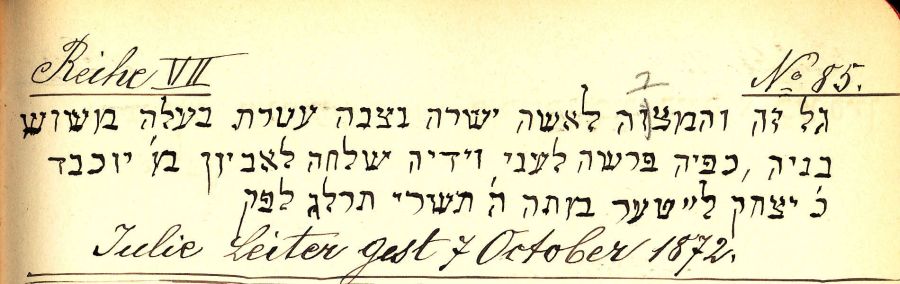 Reihe VII No 85.
גל זה והמצוה לאשה ישרה נצבה עטרת בעלה משוש
בניה, כפיה פרשה לעני וידיה שלחה לאביון מ' יוכבד
כ' יצחק לייטער במתה ה' תשרי תרלג לפק
Julie Leiter gest 7 October 1872.